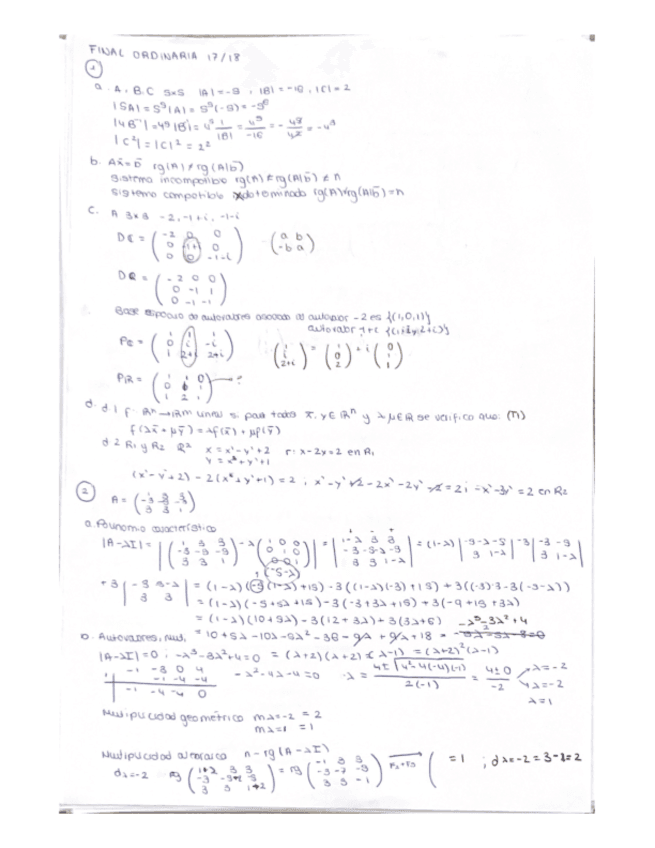 FINAL ORDINARIA 17/18
1
a. A, B, C 5x5 |A| = -5, |B| = -16, |C| = 2
|5A| = 5⁵|A| = 5⁵(-5) = -5⁶
|C²| = |C|² = 2²
b. Ax̄ = b̄ rg(A) ≠ rg(A|b̄)
Sistema incompatible rg(A) ≠ rg(A|b̄) ≠ n
Sistema compatible determinado rg(A) rg(A|b̄) = n
C. A 3x3 -2, -1+i, -1-i
DC = ( -2 0 0
0 -1+i 0
0 0 -1-i ) ( a b
-b a )
DR = ( -2 0 0
0 -1 1
0 -1 -1 )
Base espacio de autovalores asociado al autovalor -2 es {(1,0,1)}
PC = ( 1 1 1
0 i -i
1 2+i 2+i ) ( 1
i
2+i ) = ( 1
0
2 ) + i ( 0
1
1 )
PR = ( 1 1 0
0 0 1
1 2 1 ) → ?
d. d1 f: Rⁿ → Rm lineal si para todos x̄, ȳ ∈ Rⁿ y λ, μ ∈ R se verifica que: (m)
f(λx̄ + μȳ) = λf(x̄) + μf(ȳ)
d2 R1 y R2 R² x = x'-y'+2 r: x-2y=2 en R1
y = x'+y'+1
(x'-y'+2) - 2(x'+y'+1) = 2; x'-y'+2-2x'-2y'-2=2; -x'-3y'=2 en R2
2
A = ( 1 3 3
-3 -5 -3
3 3 1 )
a. Polinomio característico
|A-λI| = | ( 1 3 3
-3 -5 -3
3 3 1 ) - λ ( 1 0 0
0 1 0
0 0 1 ) | = | 1-λ 3 3
-3 -5-λ -3
3 3 1-λ | = (1-λ) | -5-λ -3
3 1-λ | -3 | -3 -3
3 1-λ |
+3 | -3 -5-λ
3 3 |
= (1-λ)(10+5λ) - 3(12+3λ) + 3(3λ+6)
-λ³-3λ²+4
b. Autovalores, mul.
|A-λI| = 0; -λ³-3λ²+4=0 = (λ+2)(λ+2)(λ-1) = (λ+2)²(λ-1)
-1 -3 0 4
1 -1 -4 -4
-1 -4 -4 0
-λ²-4λ-4=0 λ = 4±√4²-4(-4)(-1) / 2(-1) = 4±0 / -2
λ=-2
λ=-2
λ=1
Multiplicidad geométrico mλ=-2 = 2
mλ=1 = 1
Multiplicidad n-rg(A-λI)
dλ=-2 rg ( 1+2 3 3
-3 -5+2 -3
3 3 1+2 ) = rg
= 1 ; dλ=-2 = 3-1 = 2